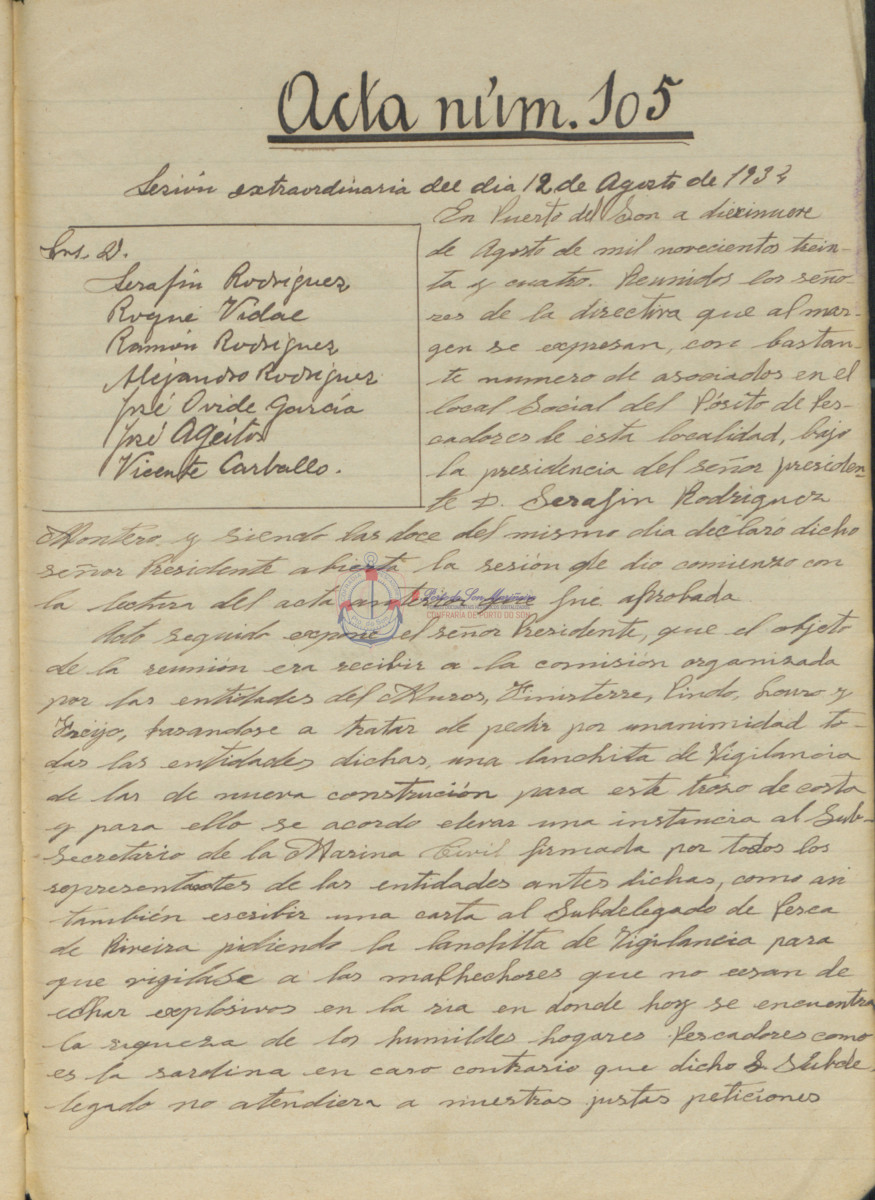 Acta núm. 105
Sesión extraordinaria del dia 12 de Agosto de 193
Srs. D.
Serafín Rodríguez
Roque Vidal
Ramón Rodríguez
Alejandro Rodríguez
José Ovide García
José Ageitos
Vicente Carballo.
En Puerto del Son a diecinueve
de Agosto de mil novecientos trein-
ta y cuatro. Reunidos los seño-
res de la directiva que al mar-
gen se expresan, con bastan-
te numero de asociados en el
local Social del Pósito de Pes-
cadores de ésta localidad, bajo
la presidencia del señor presiden-
te D. Serafin Rodriguez
Montero, y siendo las doce del mismo dia declaró dicho
señor Presidente abierta la sesión que dio comienzo con
la lectura del acta anterior que fue aprobada
Acto seguido expone el señor Presidente, que el objeto
de la reunión era recibir a la comision organizada
por las entidades del Muros, Finisterre, Pindo, Louro y
Freijo, basandose a tratar de pedir por unanimidad to-
das las entidades dichas, una lanchita de Vigilancia
de las de nueva construción para este trozo de costa
y para ello se acordo elevar una instancia al Sub-
secretario de la Marina Civil firmada por todos los
representantes de las entidades antes dichas, como asi
también escribir una carta al Subdelegado de Pesca
de Riveira pidiendo la lanchita de Vigilancia para
que vigilase a las malhechores que no cesan de
echar explosivos en la ria en donde hoy se encuentra
la riqueza de los humildes hogares Pescadores como
es la sardina en caso contrario que dicho S Subde
legado no atendiera a nuestras justas peticiones
Porto do Son
CONFRARIA DE PORTO DO SON